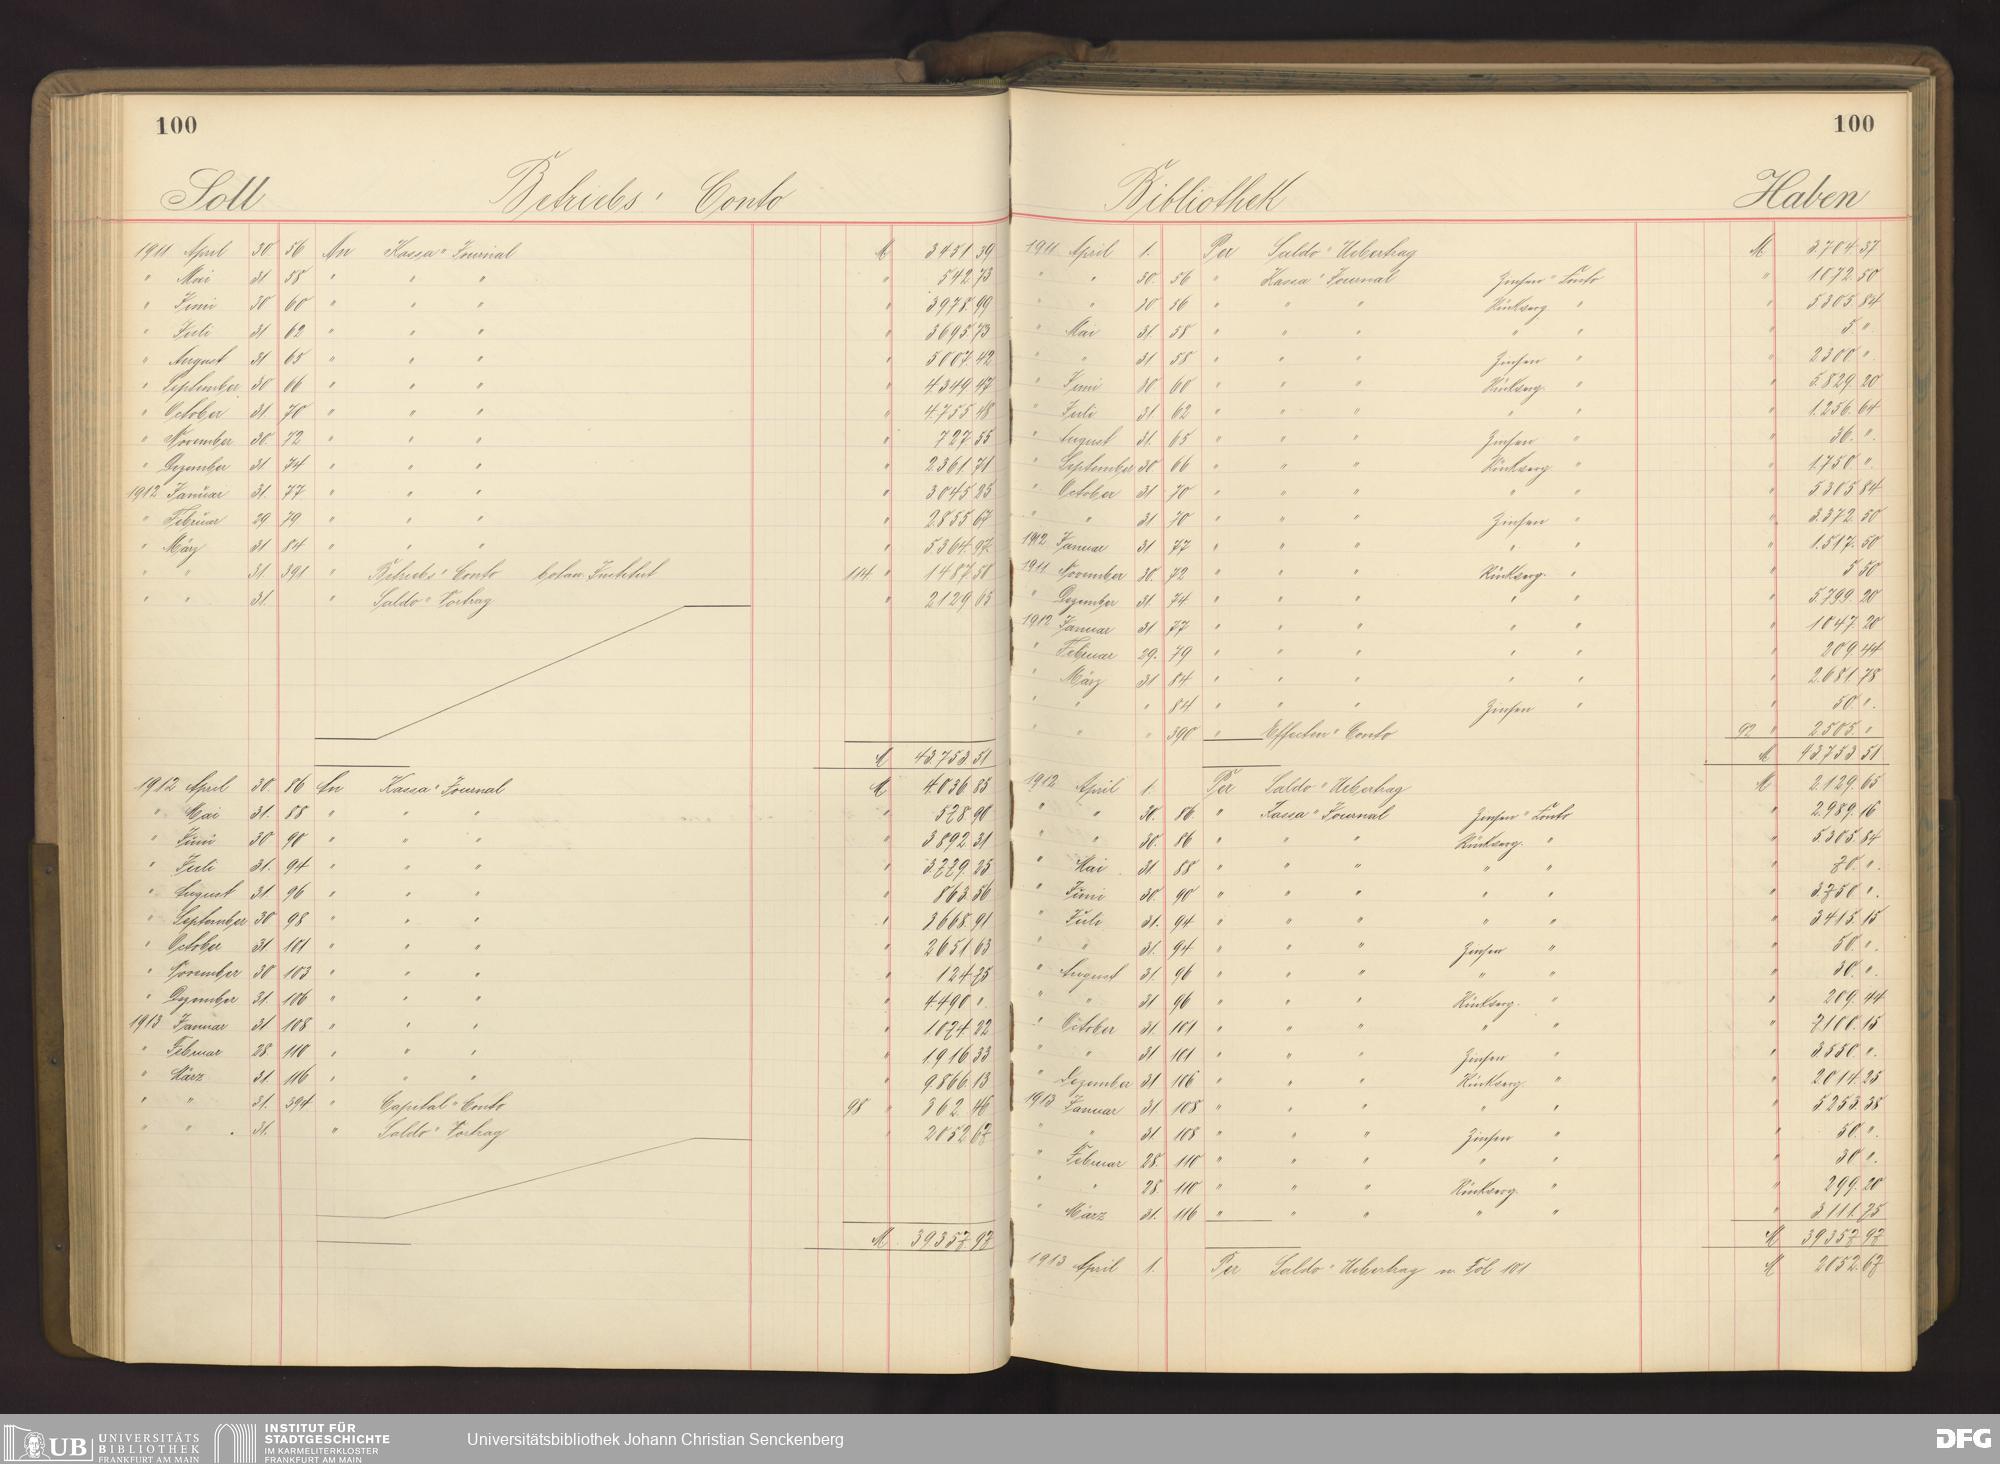 100
Soll Betriebs-Conto
1911 April 30 56 An Kassa-Journal M 3451 39
" Mai 31 58 " " " " 542 73
" Juni 30 60 " " " " 3978 99
" Juli 31 62 " " " " 3695 73
" August 31 65 " " " " 5007 42
" September 30 66 " " " " 4349 47
" October 31. 70 " " " " 4755 48
" November 30. 72 " " " " 727 55
" Dezember 31 74 " " " " 2361 71
1912 Januar 31. 77 " " " " 3045 25
" Februar 29 79 " " " " 2855 67
" März 31 84 " " " " 5364 97
" " 31. 391 " Betriebs-Conto botan. Institut 114 " 1487 50
" " 31. " Saldo-Vortrag " 2129 65
M 43.753 51
1912 April 30. 86 An Kassa-Journal M 4036 85
" Mai 31. 88 " " " " 578 90
" Juni 30 90 " " " " 3892 31
" Juli 31. 94 " " " " 3.229 25
" August 31. 96 " " " " 863 56
" September 30 98 " " " " 3668 91
" October 31 101 " " " " 2651 63
" November 30 103 " " " " 124 75
" Dezember 31. 106 " " " " 4490 "
1913 Januar 31 108 " " " " 1074 22
" Februar 28. 110 " " " " 1916 33
" März 31. 116 " " " " 9866 13
" " 31. 394 " Capital-Conto 98 " 362 46
" " 31. " Saldo-Vortrag " 2052 67
M 39357 97
100
Bibliothek Haben
1911 April 1. Per Saldo-Uebertrag M 3.704 37
" " 30. 56 " Kassa-Journal Zinsen-Conto " 1072 50
" " 30 56 " " " Rückverg. " " 5305 84
" Mai 31. 58 " " " " " " 5 "
" " 31 58 " " " Zinsen " " 2300 "
" Juni 30 60 " " " Rückverg. " " 5.829 20
" Juli 31 62 " " " " " " 1.256 64
" August 31. 65 " " " Zinsen " " 36. "
" September 30 66 " " " Rückverg " " 1750 "
" October 31 70 " " " " " " 5305 84
" " 31 70 " " " Zinsen " " 3.372 50
1912 Januar 31 77 " " " " " " 1.517 50
1911 November 30. 72 " " " Rückverg. " " 5 50
" Dezember 31. 74 " " " " " " 5.799 20
1912 Januar 31 77 " " " " " " 1047 20
" Februar 29. 79 " " " " " " 209 44
" März 31 84 " " " " " " 2.681 78
" " " 84 " " " Zinsen " " 50. "
" " " 390 " Effecten-Conto 92 " 2505 "
M 43753 51
1912 April 1. Per Saldo-Uebertrag M 2.129 65
" " 30. 86. " Kassa-Journal Zinsen-Conto " 2.989 16
" " 30. 86 " " " Rückverg. " " 5305 84
" Mai 31 88 " " " " " " 70. "
" Juni 30. 90 " " " " " " 3750 "
" Juli 31. 94 " " " " " " 3415 15
" " 31. 94 " " " Zinsen " " 50. "
" August 31 96 " " " " " " 30. "
" " 31 96 " " " Rückverg. " " 209. 44
" October 31 101 " " " " " " 7100 15
" " 31 101 " " " Zinsen " " 3550. "
" Dezember 31 106 " " " Rückverg " " 2014 25
1913 Januar 31. 108 " " " " " " 5253 38
" " 31 108 " " " Zinsen " " 50. "
" Februar 28. 110 " " " " " " 30 "
" " 28. 110 " " " Rückverg. " " 299. 20
" März 31. 116 " " " " " " 3111 75
M 39357 97
1913 April 1. Per Saldo-Uebertrag v. Fol 101 M 2052. 67
UB UNIVERSITÄTS BIBLIOTHEK FRANKFURT AM MAIN
INSTITUT FÜR STADTGESCHICHTE IM KARMELITERKLOSTER FRANKFURT AM MAIN
Universitätsbibliothek Johann Christian Senckenberg
DFG